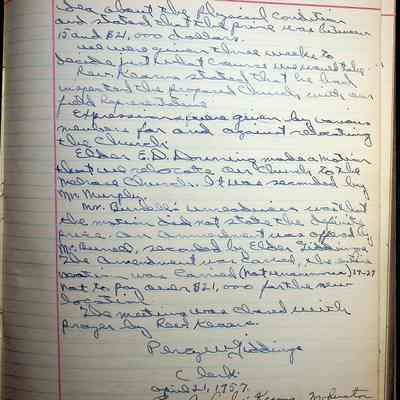 idea about the physical condition
and stated that the price was between
15 and $21,000 dollars.
We were given three weeks to
decide just what course we would take.
Rev. Kearns stated that he had
inspected the proposed Church with our
field Representative.
Expressions were given by various
members for and against relocating
the Church.
Elder E.D. Downing made a motion
that we relocate our Church to the
Melrose Church. It was seconded by
Mr. Murphy.
Mr. unreadiness was that
the motion did not state the definite
price. An amendment was offered by
Mr. seconded by Elder Giddings
The amendment was carried, the entire
motion was carried (not unanimous)
not to pay over $21,000 for the new
location.
The meeting was closed with
prayer by Rev. Kearns.
Percy W. Giddings
Clerk.
April 21, 1957.
Kearns, Moderator